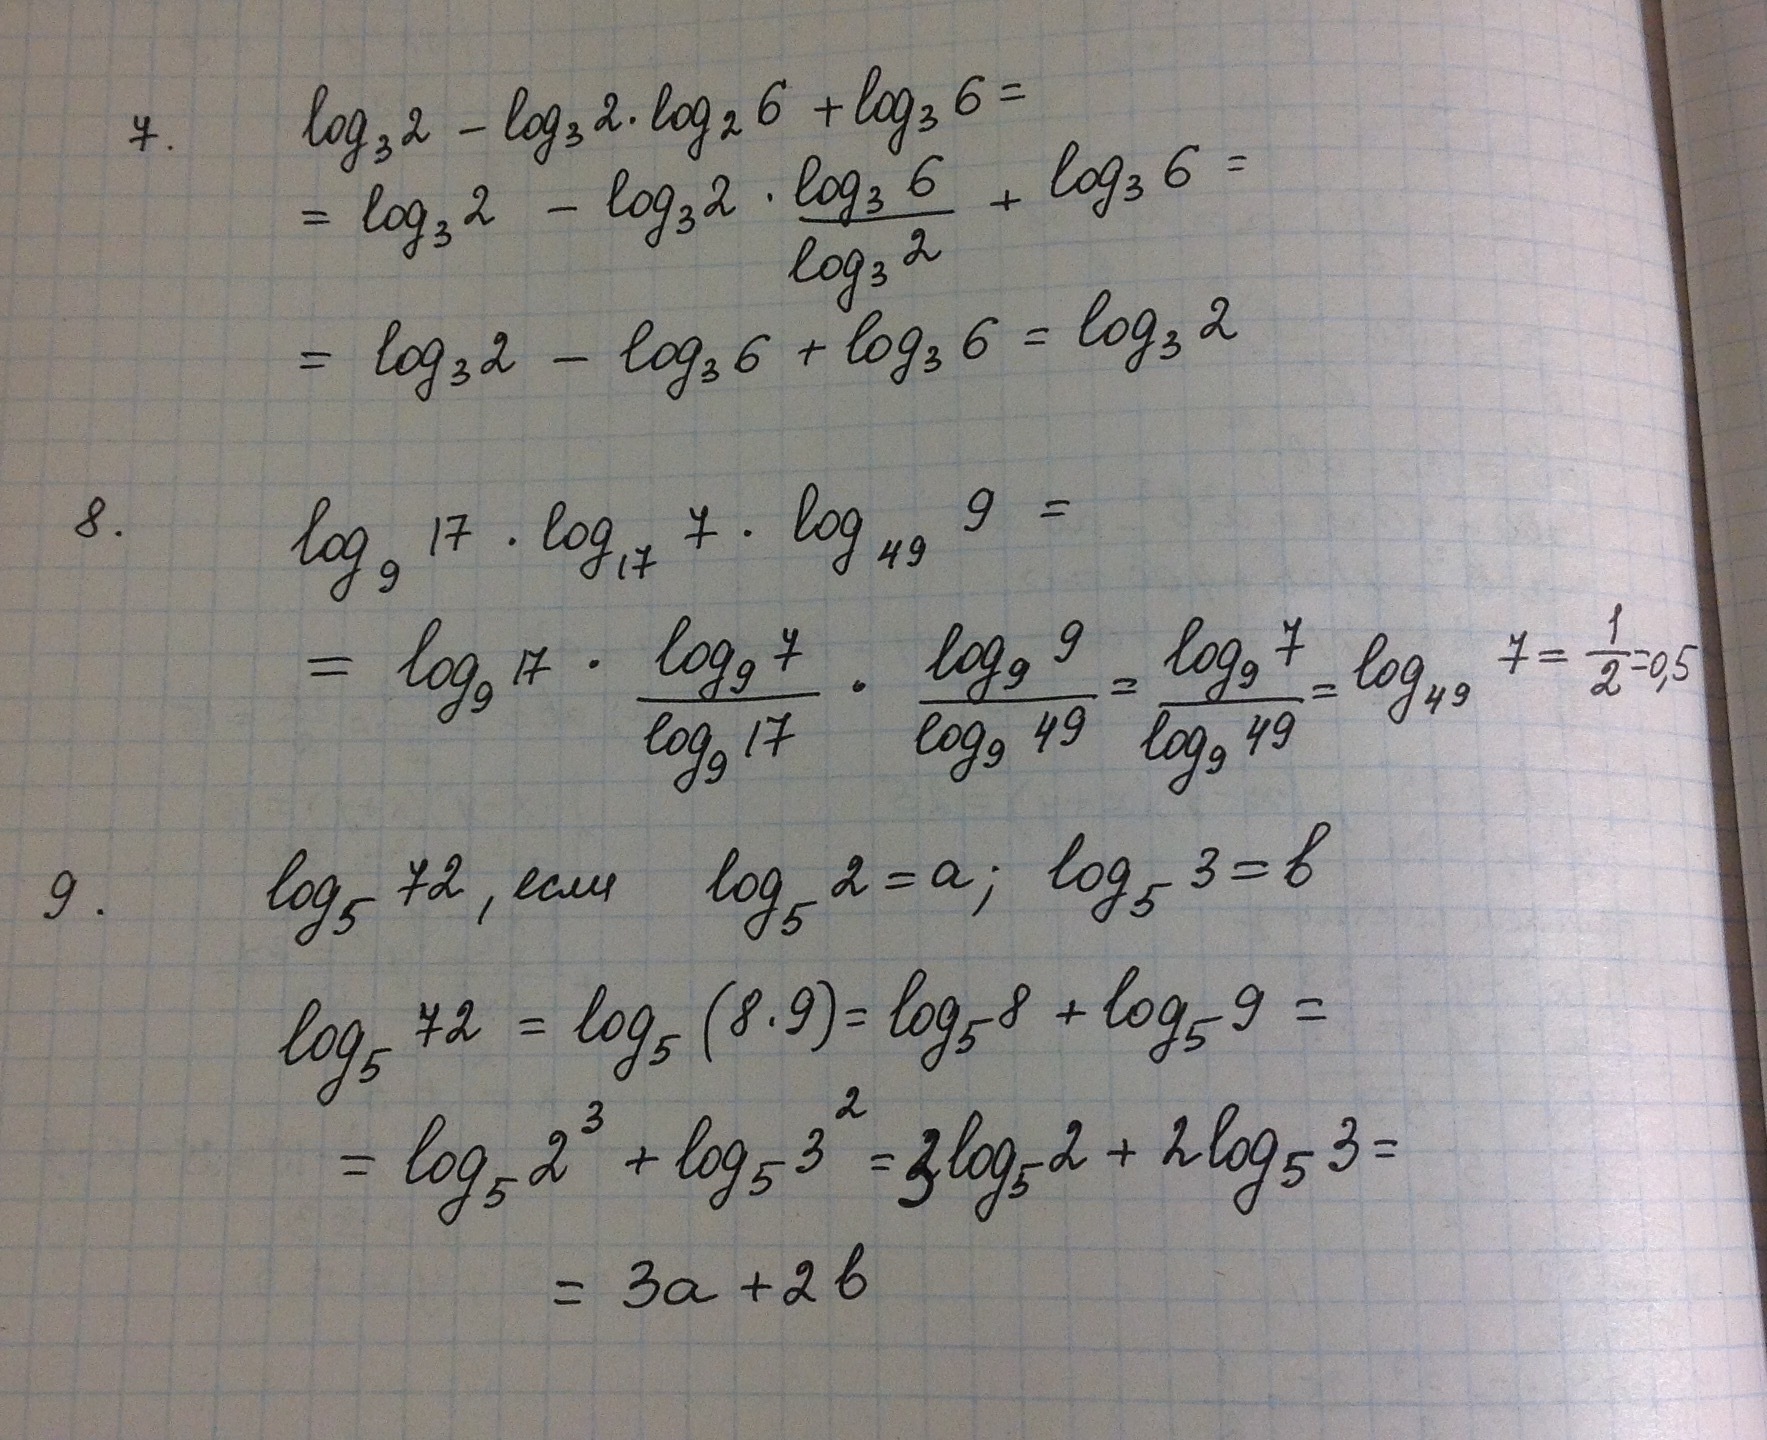 7. log₃2 − log₃2 · log₂6 + log₃6 =
= log₃2 − log₃2 · (log₃6)/(log₃2) + log₃6 =
= log₃2 − log₃6 + log₃6 = log₃2
8. log₉17 · log₁₇7 · log₄₉9 =
= log₉17 · (log₉7)/(log₉17) · (log₉9)/(log₉49) = (log₉7)/(log₉49) = log₄₉7 = 1/2 = 0,5
9. log₅72, если log₅2 = a; log₅3 = b
log₅72 = log₅(8·9) = log₅8 + log₅9 =
= log₅2³ + log₅3² = 3log₅2 + 2log₅3 =
= 3a + 2b